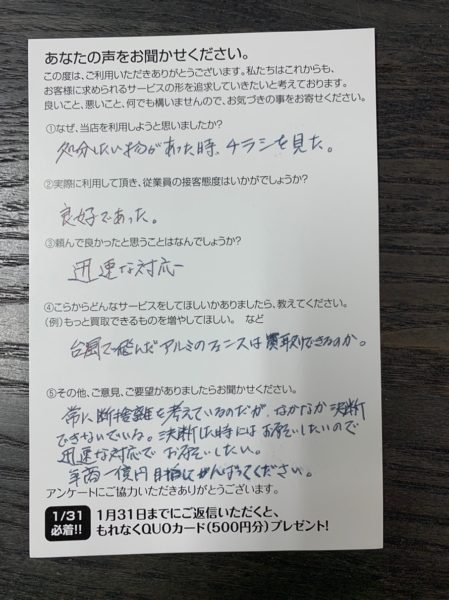 あなたの声をお聞かせください。
この度は、ご利用いただきありがとうございます。私たちはこれからも、
お客様に求められるサービスの形を追求していきたいと考えております。
良いこと、悪いこと、何でも構いませんので、お気づきの事をお寄せください。
①なぜ、当店を利用しようと思いましたか?
処分したい物があった時、チラシを見た。
②実際に利用して頂き、従業員の接客態度はいかがでしょうか?
良好であった。
③頼んで良かったと思うことはなんでしょうか?
迅速な対応
④こらからどんなサービスをしてほしいかありましたら、教えてください。
(例)もっと買取できるものを増やしてほしい。 など
台風で飛んだアルミのフェンスは買取りできるのか。
⑤その他、ご意見、ご要望がありましたらお聞かせください。
常に断捨離を考えているのだが、なかなか決断
できないでいる。決断した時にはお願いしたいので
迅速な対応でお願いしたい。
年商一億円目指してがんばってください。
アンケートにご協力いただきありがとうございます。
1/31
必着!!
1月31日までにご返信いただくと、
もれなくQUOカード(500円分)プレゼント!